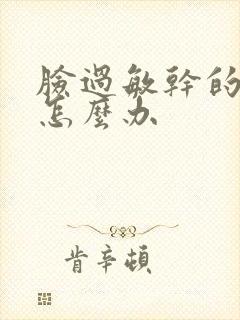 臉過敏幹的
怎麼办
肯辛頓